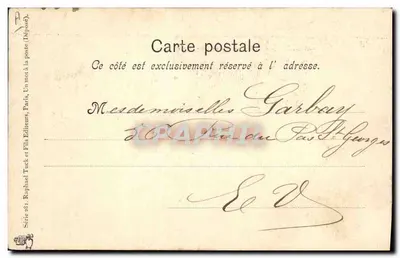 Carte postale
Ce côté est exclusivement réservé à l' adresse.
Mesdemoiselles Garbay
du Pas St Georges
E V
Série 281. Raphael Tuck et Fils Editeurs, Paris, Un mot à la poste (Déposé).